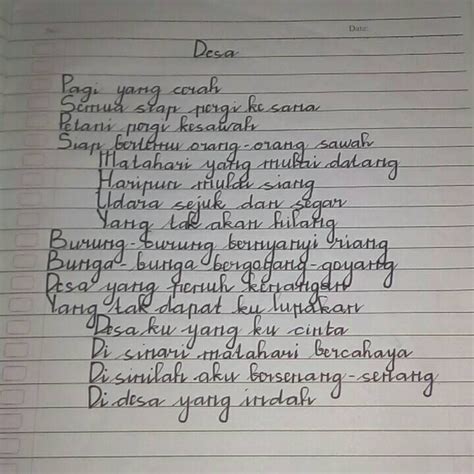 No:
Date:
Desa
Pagi yang cerah
Semua siap pergi ke sana
Petani pergi kesawah
Siap bertemu orang-orang sawah
Matahari yang mulai datang
Haripun mulai siang
Udara sejuk dan segar
Yang tak akan hilang
Burung-burung bernyanyi riang
Bunga-bunga bergoyang-goyang
Desa yang penuh kenangan
Yang tak dapat ku lupakan
Desa ku yang ku cinta
Di sinari matahari bercahaya
Disinilah aku bersenang-senang
Di desa yang indah